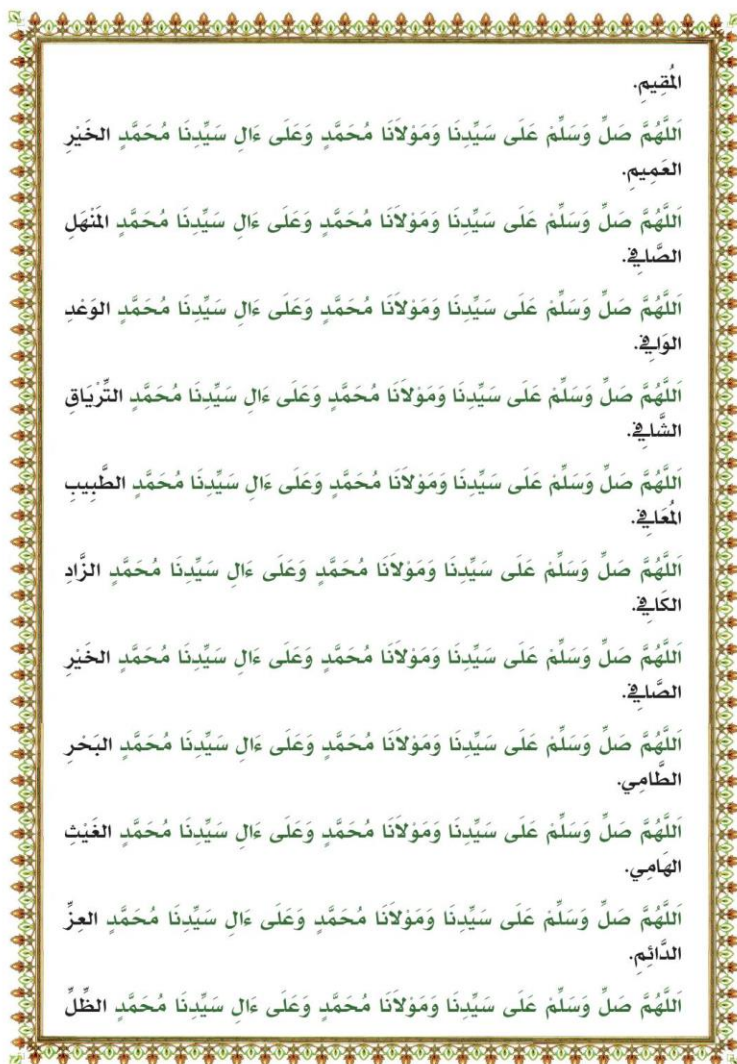 المُقِيمِ.
اَللَّهُمَّ صَلِّ وَسَلِّمْ عَلَى سَيِّدِنَا وَمَوْلاَنَا مُحَمَّدٍ وَعَلَى ءَالِ سَيِّدِنَا مُحَمَّدٍ الخَيْرِ
العَمِيمِ.
اَللَّهُمَّ صَلِّ وَسَلِّمْ عَلَى سَيِّدِنَا وَمَوْلاَنَا مُحَمَّدٍ وَعَلَى ءَالِ سَيِّدِنَا مُحَمَّدٍ المَنْهَلِ
الصَّافِي.
اَللَّهُمَّ صَلِّ وَسَلِّمْ عَلَى سَيِّدِنَا وَمَوْلاَنَا مُحَمَّدٍ وَعَلَى ءَالِ سَيِّدِنَا مُحَمَّدٍ الوَعْدِ
الوَافِي.
اَللَّهُمَّ صَلِّ وَسَلِّمْ عَلَى سَيِّدِنَا وَمَوْلاَنَا مُحَمَّدٍ وَعَلَى ءَالِ سَيِّدِنَا مُحَمَّدٍ التِّرْيَاقِ
الشَّافِي.
اَللَّهُمَّ صَلِّ وَسَلِّمْ عَلَى سَيِّدِنَا وَمَوْلاَنَا مُحَمَّدٍ وَعَلَى ءَالِ سَيِّدِنَا مُحَمَّدٍ الطَّبِيبِ
المُعَافِي.
اَللَّهُمَّ صَلِّ وَسَلِّمْ عَلَى سَيِّدِنَا وَمَوْلاَنَا مُحَمَّدٍ وَعَلَى ءَالِ سَيِّدِنَا مُحَمَّدٍ الزَّادِ
الكَافِي.
اَللَّهُمَّ صَلِّ وَسَلِّمْ عَلَى سَيِّدِنَا وَمَوْلاَنَا مُحَمَّدٍ وَعَلَى ءَالِ سَيِّدِنَا مُحَمَّدٍ الخَيْرِ
الصَّافِي.
اَللَّهُمَّ صَلِّ وَسَلِّمْ عَلَى سَيِّدِنَا وَمَوْلاَنَا مُحَمَّدٍ وَعَلَى ءَالِ سَيِّدِنَا مُحَمَّدٍ البَحْرِ
الطَّامِي.
اَللَّهُمَّ صَلِّ وَسَلِّمْ عَلَى سَيِّدِنَا وَمَوْلاَنَا مُحَمَّدٍ وَعَلَى ءَالِ سَيِّدِنَا مُحَمَّدٍ الغَيْثِ
الهَامِي.
اَللَّهُمَّ صَلِّ وَسَلِّمْ عَلَى سَيِّدِنَا وَمَوْلاَنَا مُحَمَّدٍ وَعَلَى ءَالِ سَيِّدِنَا مُحَمَّدٍ العِزِّ
الدَّائِمِ.
اَللَّهُمَّ صَلِّ وَسَلِّمْ عَلَى سَيِّدِنَا وَمَوْلاَنَا مُحَمَّدٍ وَعَلَى ءَالِ سَيِّدِنَا مُحَمَّدٍ الظِّلِّ